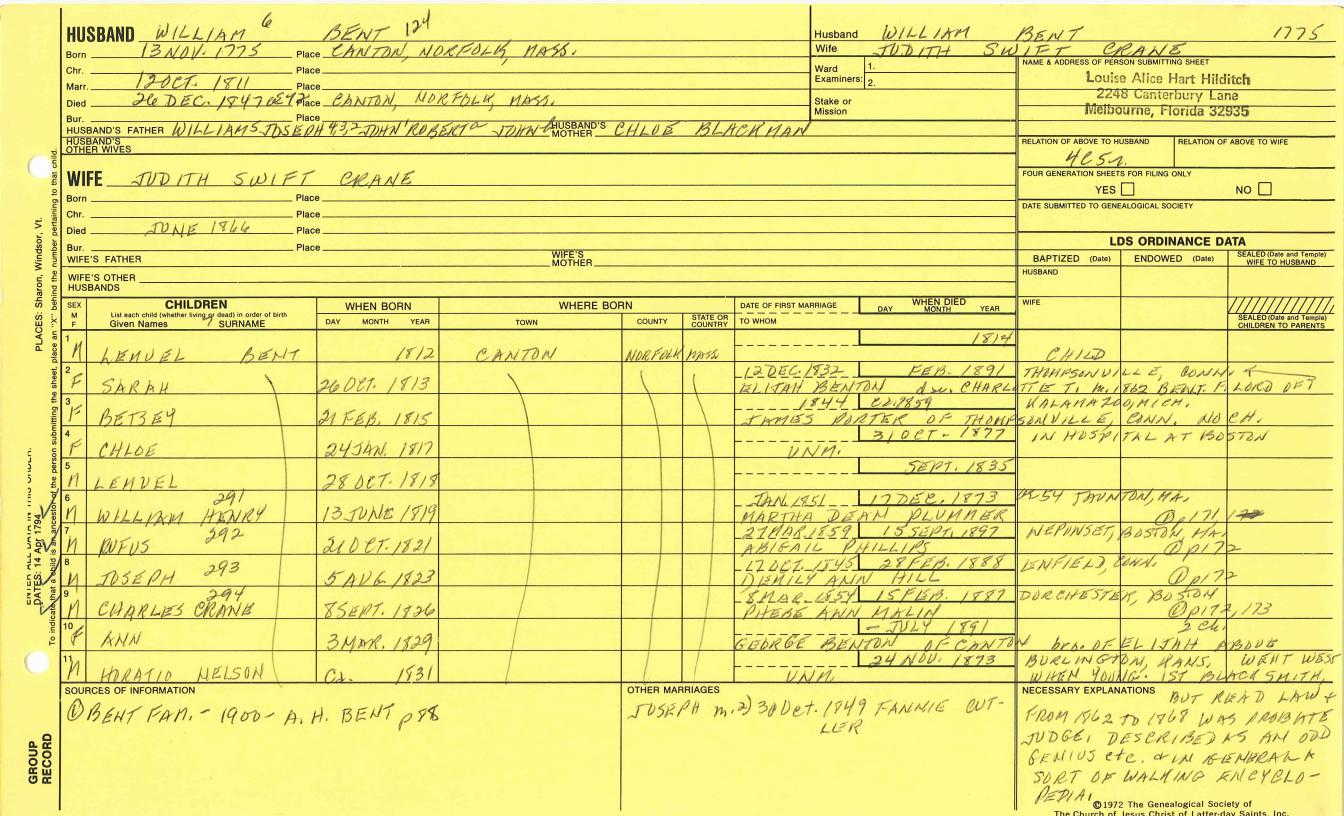 HUSBAND WILLIAM 6 BENT 124
Born 13 NOV. 1775 Place CANTON, NORFOLK, MASS.
Chr. Place
Marr. 12 OCT. 1811 Place
Died 26 DEC. 1847 Place CANTON, NORFOLK, MASS.
Bur. Place
HUSBAND'S FATHER WILLIAM5 JOSEPH4,3,2 JOHN1 ROBERTa JOHNb HUSBAND'S MOTHER CHLOE BLACKMAN
HUSBAND'S OTHER WIVES
Husband WILLIAM BENT 1775
Wife JUDITH SWIFT CRANE
Ward Examiners: 1.
2.
Stake or Mission
NAME & ADDRESS OF PERSON SUBMITTING SHEET
Louise Alice Hart Hilditch
2248 Canterbury Lane
Melbourne, Florida 32935
RELATION OF ABOVE TO HUSBAND RELATION OF ABOVE TO WIFE
4C5r.
FOUR GENERATION SHEETS FOR FILING ONLY
YES NO
DATE SUBMITTED TO GENEALOGICAL SOCIETY
WIFE JUDITH SWIFT CRANE
Born Place
Chr. Place
Died JUNE 1866 Place
Bur. Place
WIFE'S FATHER WIFE'S MOTHER
WIFE'S OTHER HUSBANDS
LDS ORDINANCE DATA
BAPTIZED (Date) ENDOWED (Date) SEALED (Date and Temple) WIFE TO HUSBAND
HUSBAND
WIFE
SEALED (Date and Temple) CHILDREN TO PARENTS
SEX M F CHILDREN WHEN BORN WHERE BORN DATE OF FIRST MARRIAGE WHEN DIED
List each child (whether living or dead) in order of birth
Given Names SURNAME DAY MONTH YEAR TOWN COUNTY STATE OR COUNTRY TO WHOM DAY MONTH YEAR
1 1814
M LEMUEL BENT 1812 CANTON NORFOLK MASS CHILD
2 12 DEC. 1832 FEB. 1891 THOMPSONVILLE, CONN.
F SARAH 26 OCT. 1813 ELIJAH BENTON CHARLOTTE T. m. 1862 BENT. F. LORD OF
3 1844 1859 KALAMAZOO, MICH.
F BETSEY 21 FEB. 1815 JAMES PORTER OF THOMPSONVILLE, CONN. NO CH.
4 31 OCT - 1877 IN HOSPITAL AT BOSTON
F CHLOE 24 JAN. 1817 UNM.
5 SEPT. 1835
M LEMUEL 28 OCT. 1818
6 291 JAN. 1851 17 DEC. 1873 54 TAUNTON, MA.
M WILLIAM HENRY 13 JUNE 1819 MARTHA DEAN PLUMMER p171
7 292 27 MAR 1859 15 SEPT. 1897 NEPONSET, BOSTON MA.
M RUFUS 21 OCT. 1821 ABIGAIL PHILLIPS p172
8 293 17 OCT. 1845 28 FEB. 1888 ENFIELD, CONN.
M JOSEPH 5 AUG 1823 EMILY ANN HILL p172
9 294 8 MAR. 1854 15 FEB. 1887 DORCHESTER, BOSTON
M CHARLES CRANE 8 SEPT. 1826 PHEBE ANN MALIN p172, 173
10 - JULY 1891 2 ch.
F ANN 3 MAR. 1829 GEORGE BENTON OF CANTON bro. OF ELIJAH ABOVE
11 24 NOV. 1873 BURLINGTON, KANS. WENT WEST
M HORATIO NELSON Ca. 1831 UNM. WHEN YOUNG. 1ST BLACKSMITH,
SOURCES OF INFORMATION
① BENT FAM. - 1900 - A. H. BENT p 88
OTHER MARRIAGES
JOSEPH m. 2) 30 Oct. 1849 FANNIE CUT-
LER
NECESSARY EXPLANATIONS BUT READ LAW +
FROM 1862 TO 1868 WAS PROBATE
JUDGE. DESCRIBED AS AN ODD
GENIUS etc. & IN GENERAL A
SORT OF WALKING ENCYCLO-
PEDIA.
©1972 The Genealogical Society of
The Church of Jesus Christ of Latter-day Saints, Inc.
GROUP RECORD
ENTER ALL DATA IN THIS ORDER:
DATES: 14 Apr 1794
PLACES: Sharon, Windsor, Vt.
To indicate that a child is an ancestor of the person submitting the sheet, place an "X" behind the number pertaining to that child.